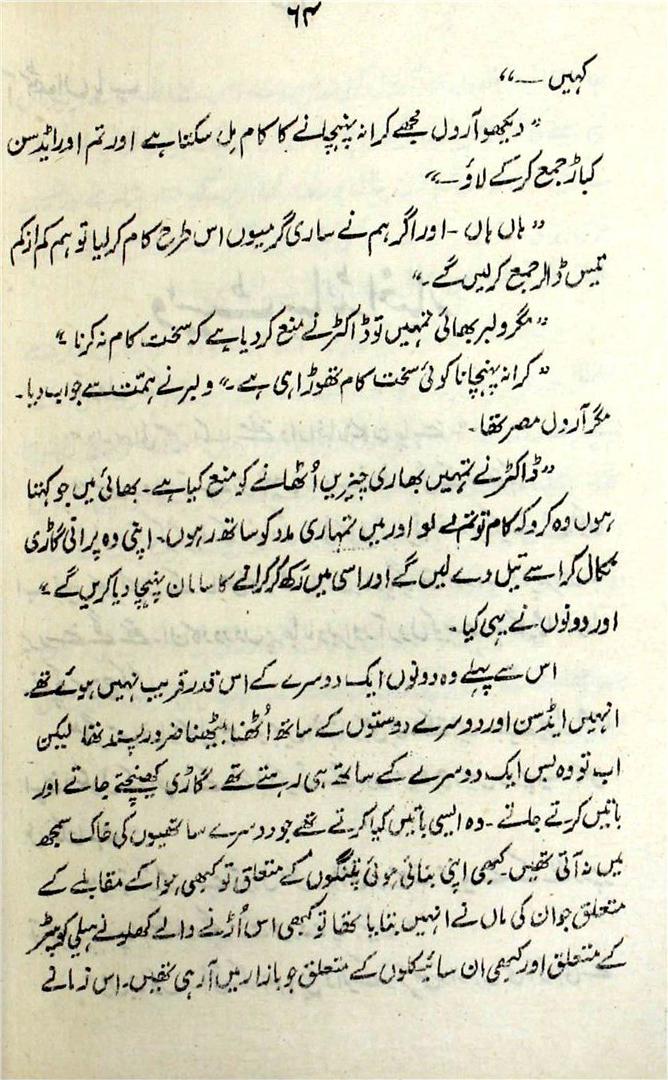 ۶۴
کہیں ــ“
”دیکھو آرول مجھے کرانہ پہنچانے کا کام مل سکتا ہے اور تم اور ایڈسن
کباڑ جمع کر کے لاؤ ــ“
”ہاں ہاں - اور اگر ہم نے ساری گرمیوں اس طرح کام کر لیا تو ہم کم از کم
تیس ڈالر جمع کر لیں گے۔“
”مگر ولبر بھائی تمہیں تو ڈاکٹر نے منع کر دیا ہے کہ سخت کام نہ کرنا“
”کرانہ پہنچانا کوئی سخت کام تھوڑا ہی ہے۔“ ولبر نے ہمت سے جواب دیا۔
مگر آرول مصر تھا۔
”ڈاکٹر نے تمہیں بھاری چیزیں اُٹھانے کو منع کیا ہے۔ بھائی میں جو کہتا
ہوں وہ کرو کہ کام تو تم لے لو اور میں تمہاری مدد کو ساتھ رہوں۔ اپنی وہ پرانی گاڑی
نکال کر اسے تیل دے لیں گے اور اسی میں رکھ کر کرانے کا سامان پہنچا دیا کریں گے“
اور دونوں نے یہی کیا۔
اس سے پہلے وہ دونوں ایک دوسرے کے اس قدر قریب نہیں ہوئے تھے۔
انہیں ایڈسن اور دوسرے دوستوں کے ساتھ اُٹھنا بیٹھنا ضرور پسند تھا لیکن
اب تو وہ بس ایک دوسرے کے ساتھ ہی رہتے تھے۔ گاڑی کھینچتے جاتے اور
باتیں کرتے جاتے۔ وہ ایسی باتیں کیا کرتے تھے جو دوسرے ساتھیوں کی خاک سمجھ
میں نہ آتی تھیں۔ کبھی اپنی بنائی ہوئی پتنگوں کے متعلق تو کبھی ہوا کے مقابلے کے
متعلق جو ان کی ماں نے انہیں بتایا تھا تو کبھی اس اُڑنے والے کھلونے ہیلی کوپٹر
کے متعلق اور کبھی ان سائیکلوں کے متعلق جو بازار میں آ رہی تھیں۔ اس زمانے